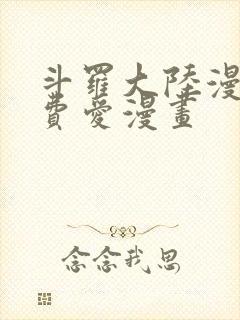 斗羅大陸漫
費愛漫畫
念念我思